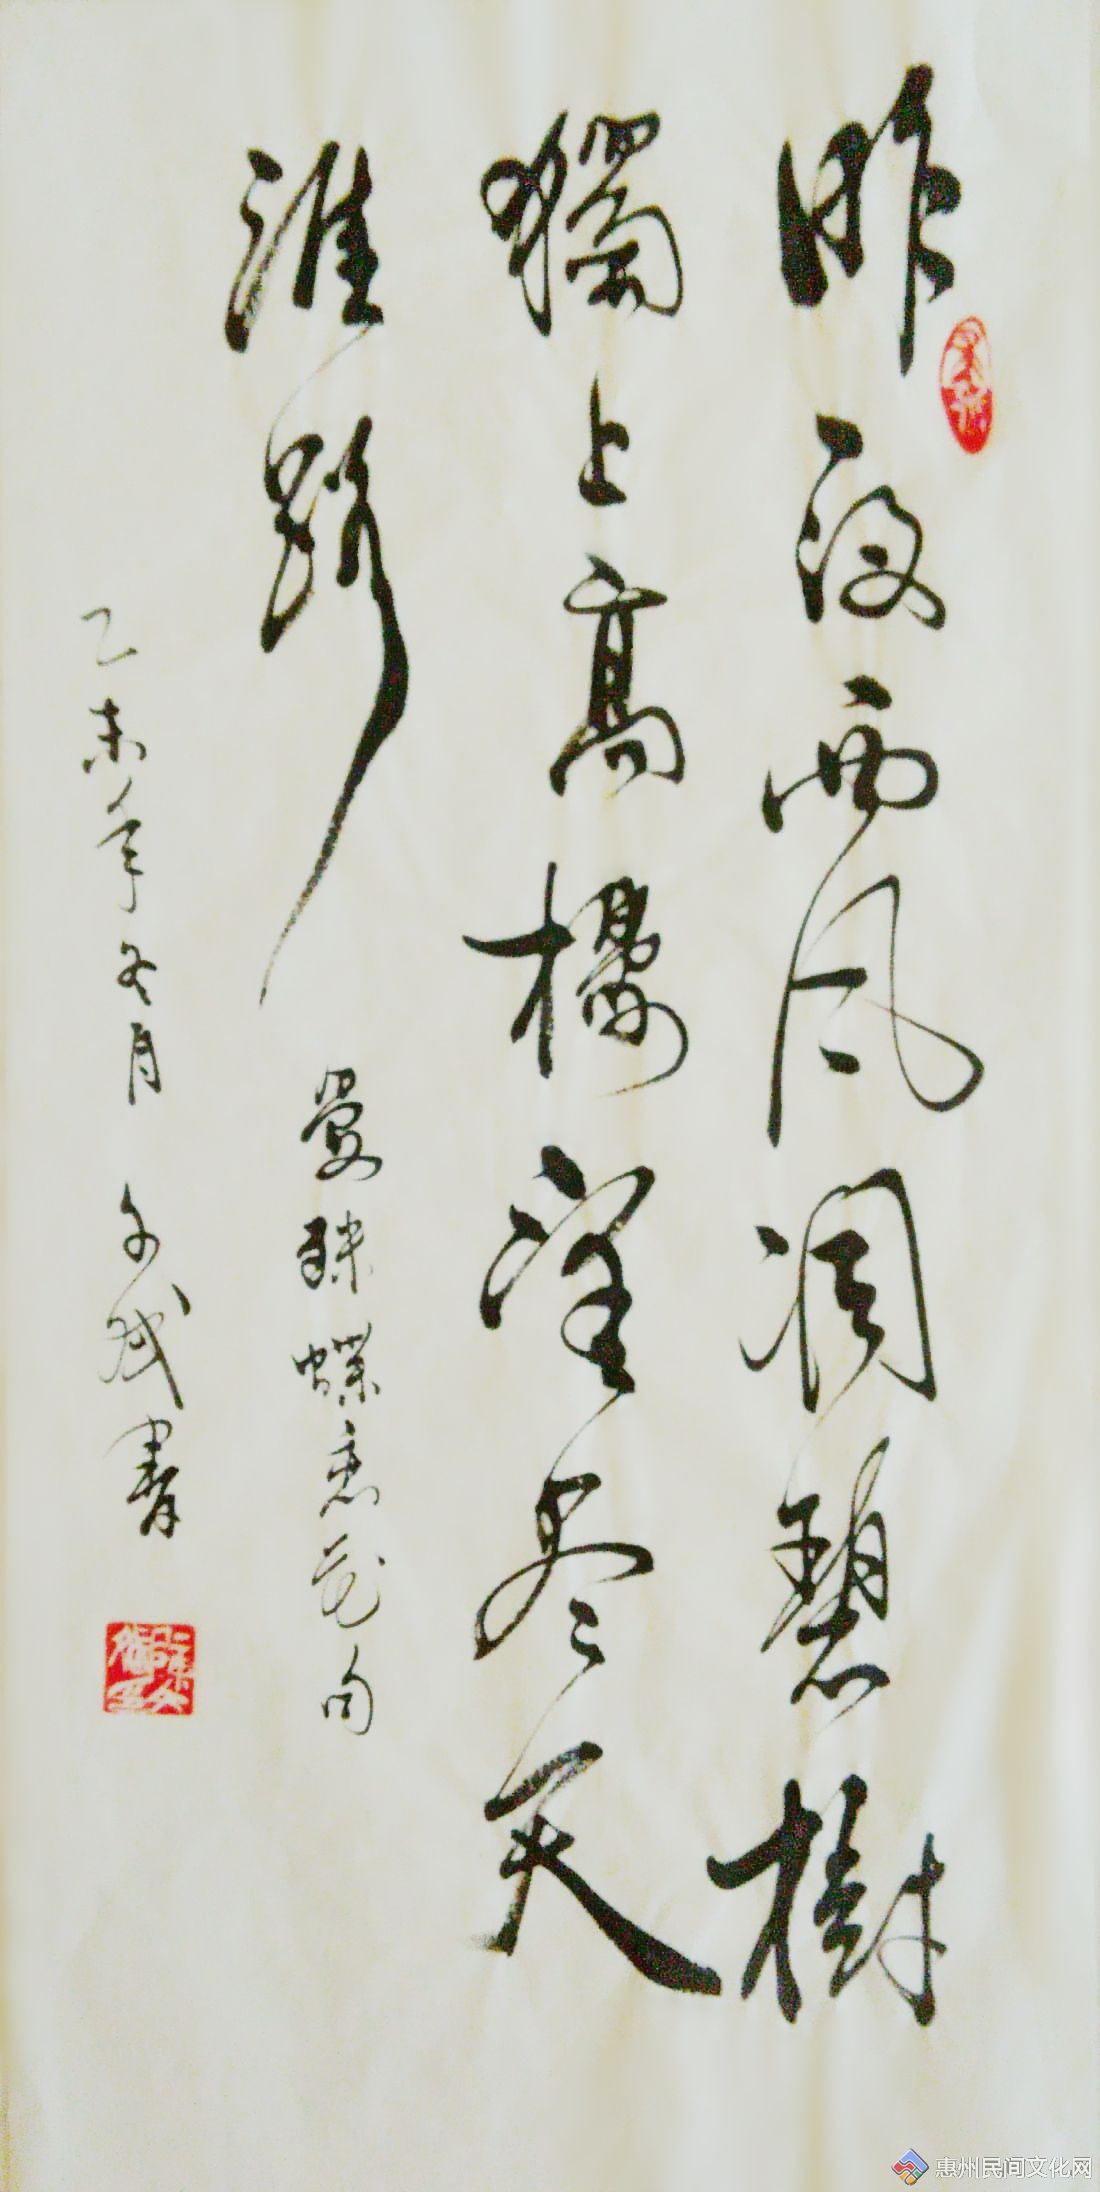 昨夜西风凋碧樹
獨上高樓望尽天
涯路
晏殊蝶恋花句
乙未年冬月 書
惠州民间文化网